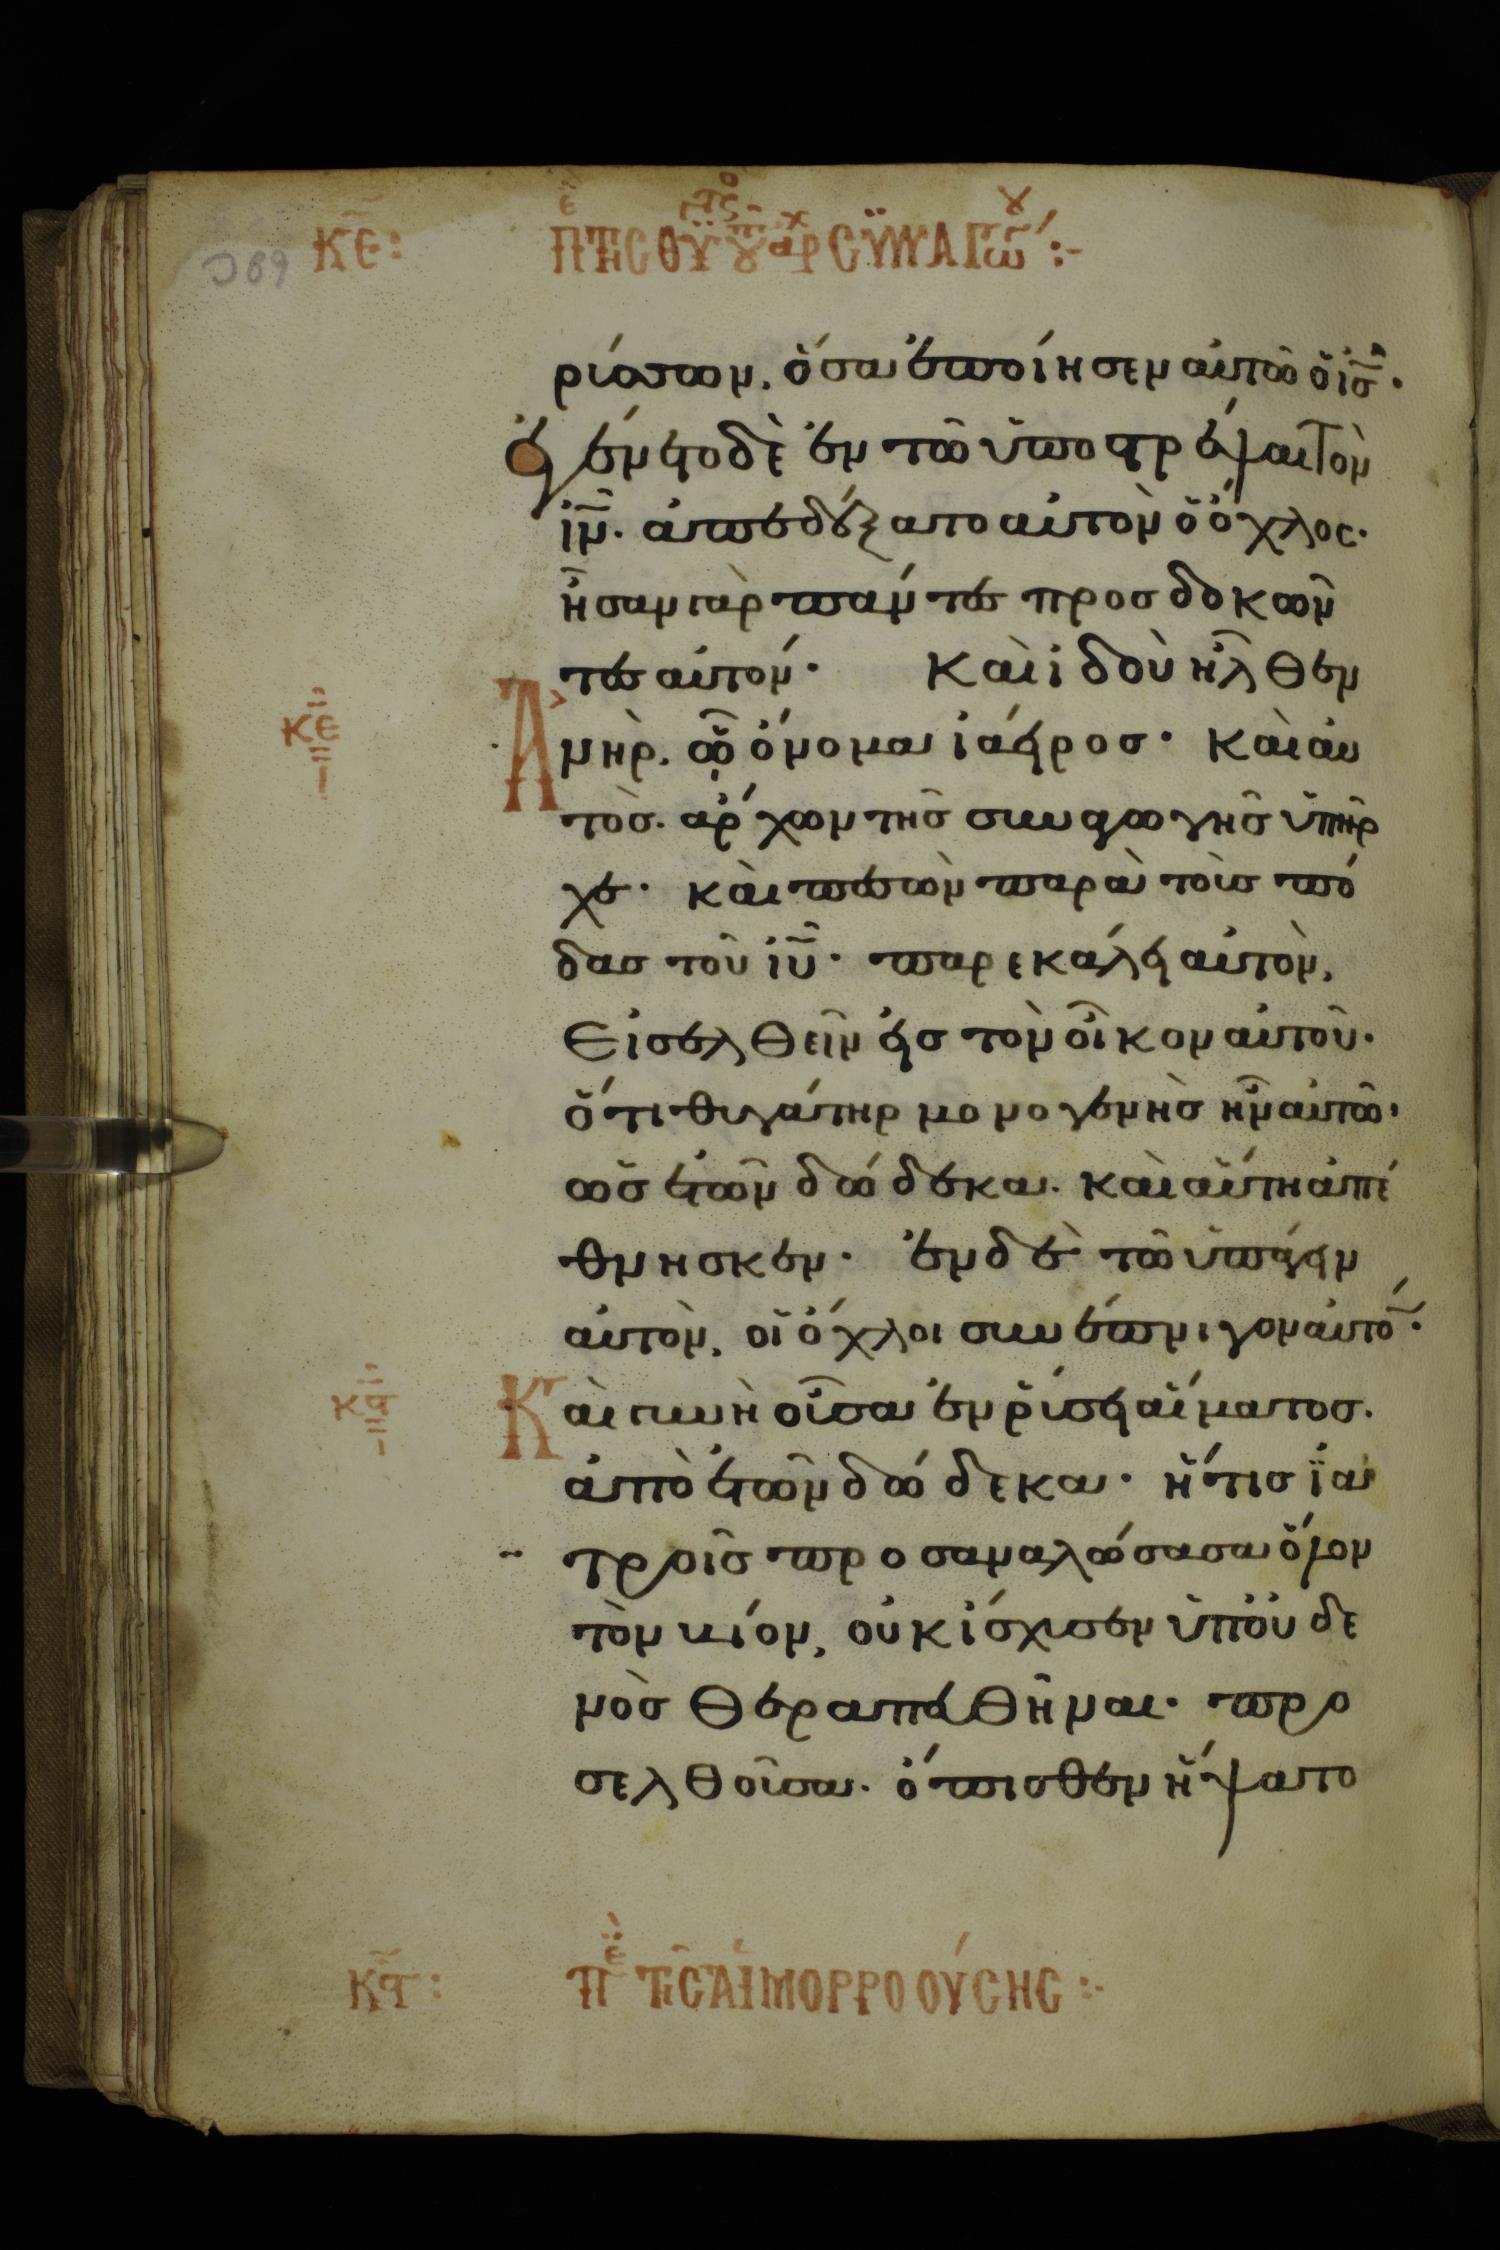 κε: πε τῆς θυγατρὸς τοῦ ἀρχισυναγώγου :-
ριάτων, ὅσα ἐποίησεν αὐτῶ ὁ ἰς̅.
ἐγένετο δὲ ἐν τῶ ὑποστρέψαι τὸν
ιν̅. ἀπεδέξατο αὐτὸν ὁ ὄχλος.
ἦσαν γὰρ πάντες προσδοκῶν
τες αὐτόν. Καὶ ἰδοὺ ἦλθεν
κε Ἀνὴρ, ὧ ὄνομα ἰάειρος. καὶ αὐ
τὸς. ἄρχων τῆς συναγωγῆς ὑπῆρ
χε. καὶ πεσὼν παρὰ τοὺς πό
δας τοῦ ιυ̅. παρεκάλει αὐτὸν,
Εἰσελθεῖν εἰς τὸν οἶκον αὐτοῦ.
ὅτι θυγάτηρ μονογενὴς ἦν αὐτῶ.
ὡς ἐτῶν δώδεκα. καὶ αὕτη ἀπέ
θνησκεν. ἐν δὲ τῶ ὑπάγειν
αὐτὸν, οἱ ὄχλοι συνέπνιγον αὐτό̅.
κϛ Καὶ γυνὴ οὖσα ἐν ῥύσει αἵματος.
ἀπὸ ἐτῶν δώδεκα. ἥτις ϊα
τροῖς προσαναλώσασα ὅλον
τὸν βίον, οὐκ ἴσχυσεν ὑπ' οὐδε
νὸς θεραπευθῆναι. προ
σελθοῦσα. ὄπισθεν ἥψατο
κϛ: πε τῆς αἱμορροούσης :-